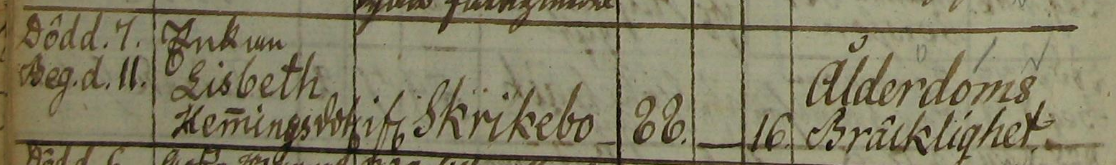 Död d. 7. Enkan
Beg. d. 11. Lisbeth
Hem̄ingsdotr ifr. Skrikebo 88. — 16. Ålderdoms
Bräcklighet.